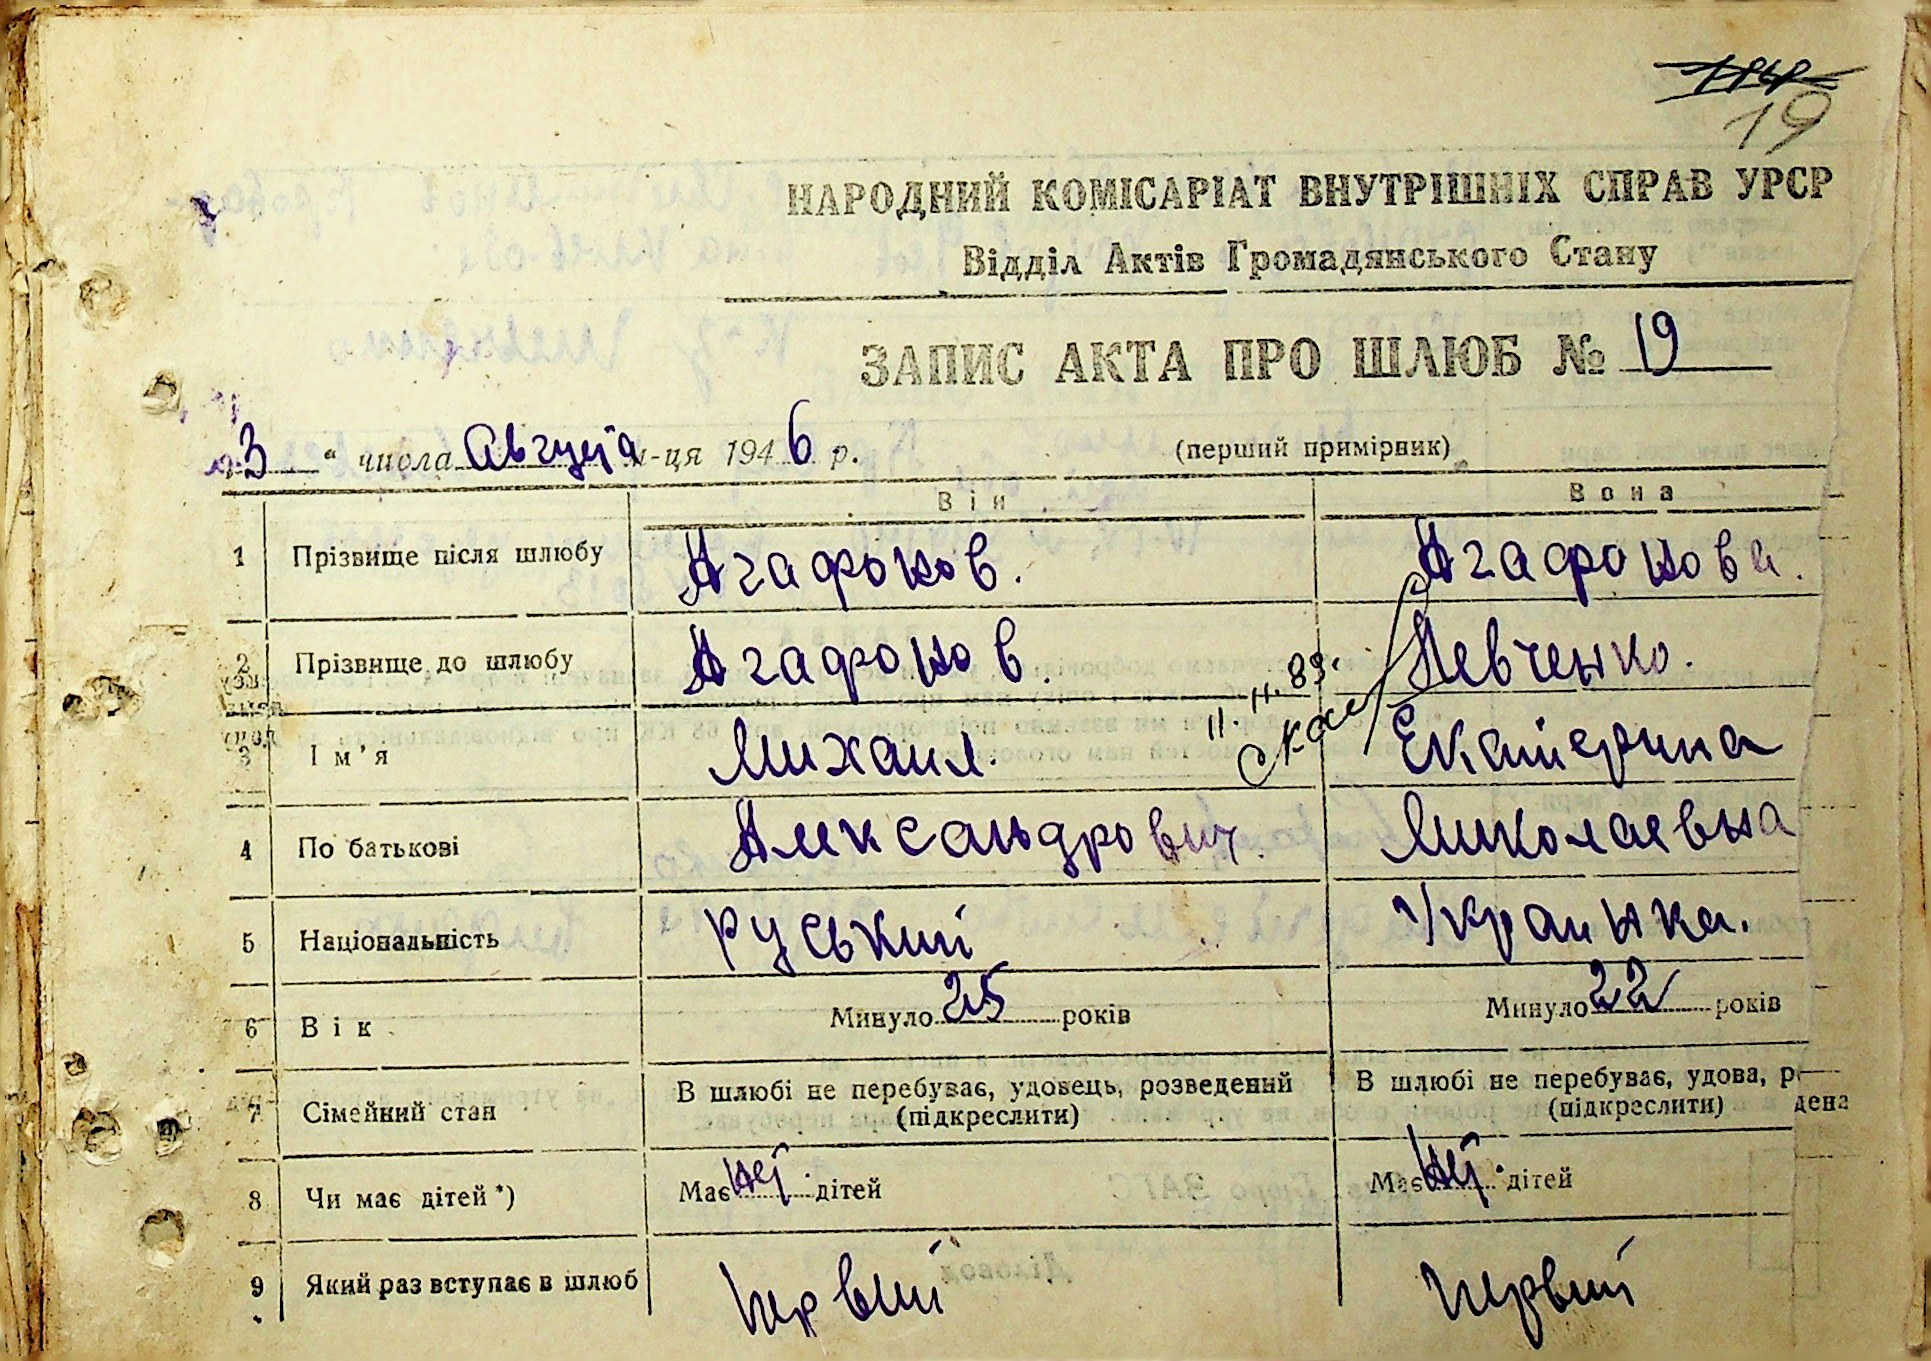 19
НАРОДНИЙ КОМІСАРІАТ ВНУТРІШНІХ СПРАВ УРСР
Відділ Актів Громадянського Стану
ЗАПИС АКТА ПРО ШЛЮБ № 19
„3“ числа Августа м-ця 1946 р. (перший примірник)
Він Вона
1 Прізвище після шлюбу Агафонов. Агафонова.
2 Прізвище до шлюбу Агафонов. Левченко.
11.11.83г.
3 Ім'я Михаил. Екатерина
4 По батькові Александрович. Миколаевна
5 Національність Руський Украинка.
6 Вік Минуло 25 років Минуло 22 років
7 Сімейний стан В шлюбі не перебуває, удовець, розведений (підкреслити) В шлюбі не перебуває, удова, р дена (підкреслити)
8 Чи має дітей *) Має нет дітей Має нет дітей
9 Який раз вступає в шлюб Первый Первый